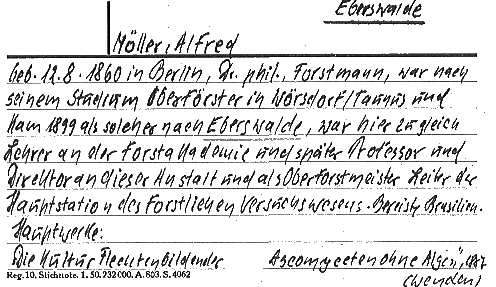 Eberswalde
Möller, Alfred
geb. 12.8.1860 in Berlin, Dr. phil., Forstmann, war nach
seinem Studium Oberförster in Wörsdorf/Taunus und
kam 1899 als solcher nach Eberswalde, war hier zugleich
Lehrer an der Forstakademie und später Professor und
Direktor an dieser Anstalt und als Oberforstmeister Leiter der
Hauptstation des Forstlichen Versuchswesens. Bereiste Brasilien.
Hauptwerke:
Die Kultur Flechtenbildender Ascomyceten ohne Algen", 1887
Reg. 10, Stichnote. 1. 50. 232000. A. 803. S. 4062
(wenden)